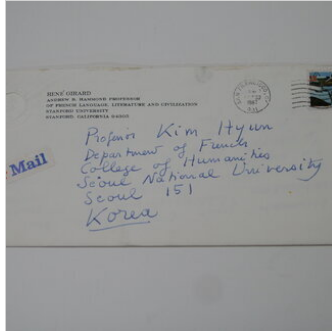 RENÉ GIRARD
ANDREW B. HAMMOND PROFESSOR
OF FRENCH LANGUAGE, LITERATURE AND CIVILIZATION
STANFORD UNIVERSITY
STANFORD, CALIFORNIA 94305
Mail
Professor Kim Hyun
Department of French
College of Humanities
Seoul National University
Seoul 151
Korea